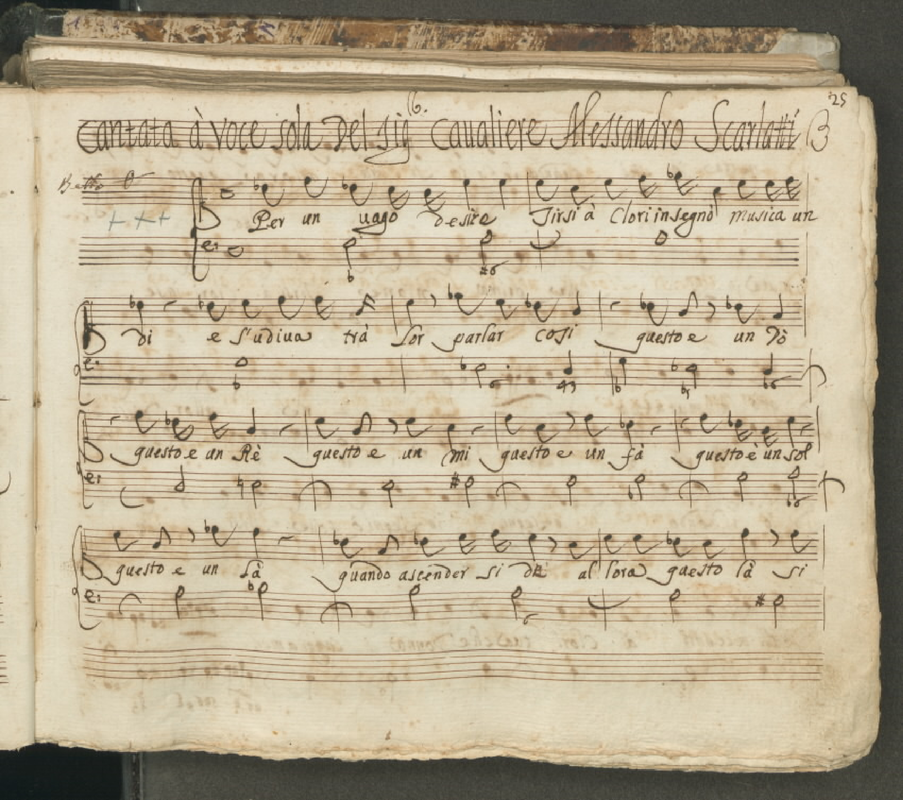 25
6.
Cantata à voce sola Del Sig.r Caualiere Alessandro Scarlatti
Per un uago desire Tirsi à Clori insegnò musica un
di e s'udiua trà lor parlar cosi questo e un Dò
questo e un Rè questo e un mi questo e un fà questo e un sol
questo e un là quando ascender si dè al lora questo là si